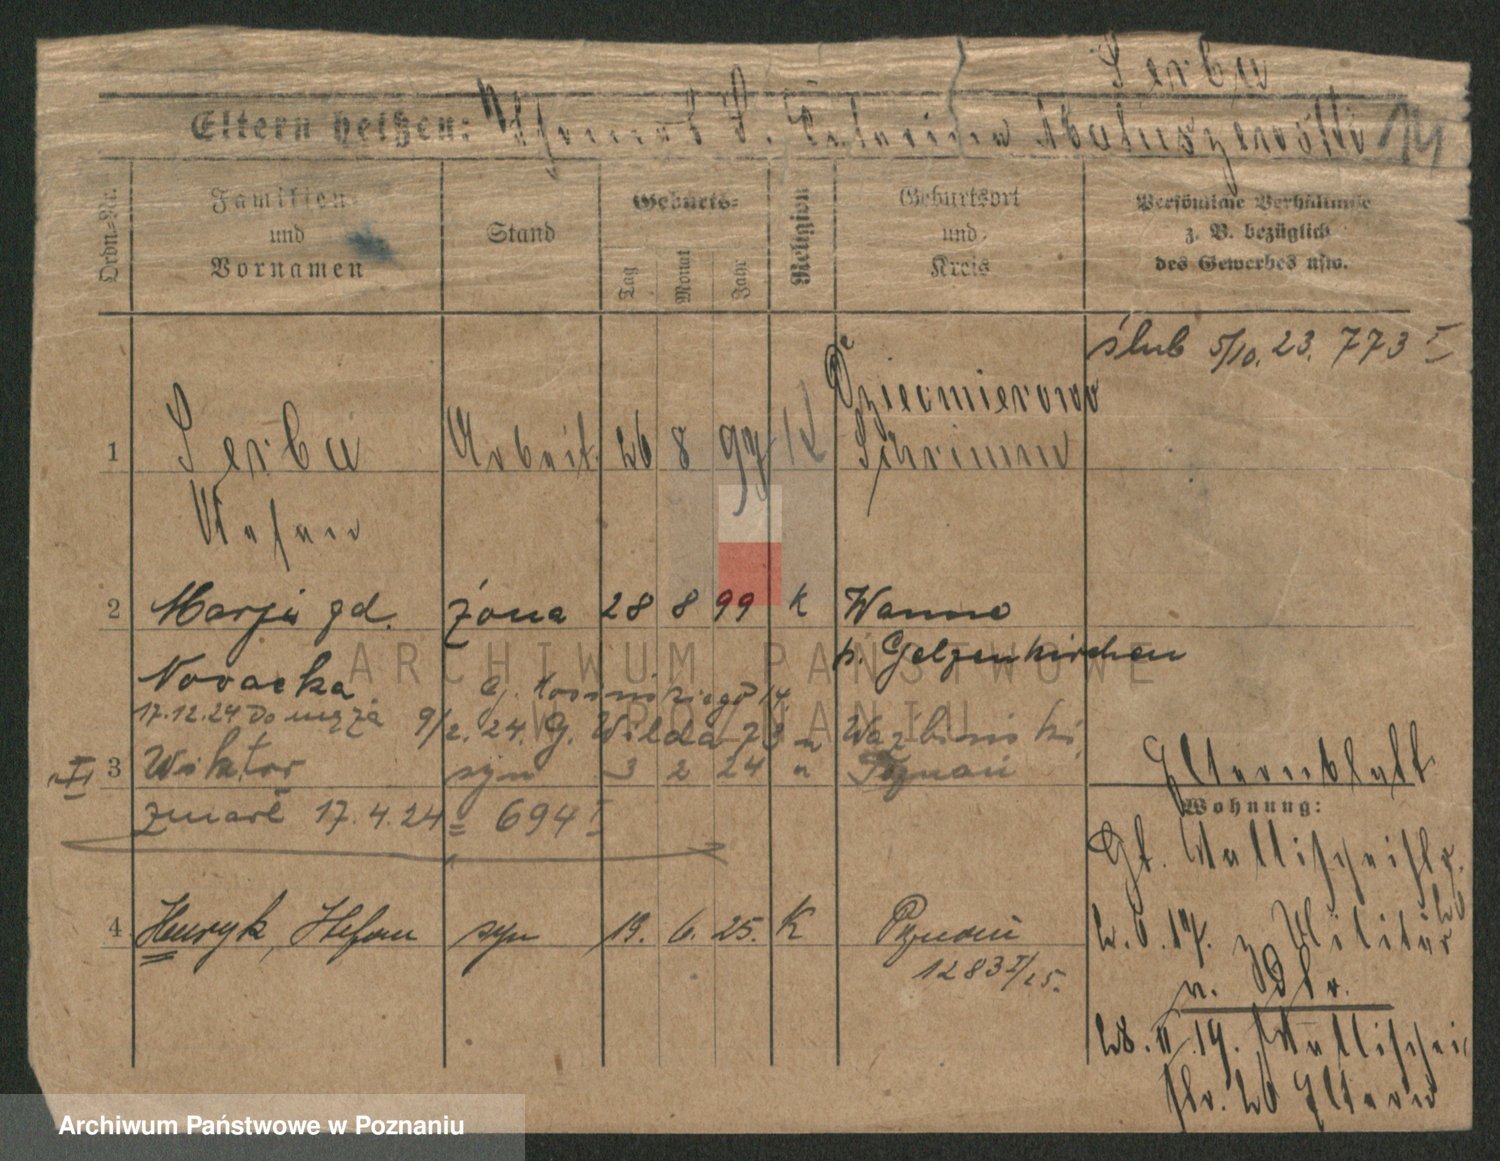 Serba
Eltern heißen: Thomas S. Katarina Matuszewski 14
Ordn.-Nr.
Familien-
und
Vornamen
Stand
Geburts-
Tag
Monat
Jahr
Religion
Geburtsort
und
Kreis
Persönliche Verhältnisse
z. B. bezüglich
des Gewerbes usw.
ślub 5/10. 23. 773 I
1 Serba Arbeit. 26 8 97 K
Schrimm
Stefan
2 Marja gd. żona 28 8 99 K Wanne
p. Gelzenkirchen
Nowacka
17.12.24 Do męża 9/2. 24. G. Wilda 73
3 Wiktor syn 3 2 24 Poznań
zmarł 17.4.24 = 694 I
Elternblatt
Wohnung:
4 Henryk, Stefan syn 19. 6. 25. K Poznań
1283 I/25.
z. Militär
28. 11. 19.
str. 26 Eltern
ARCHIWUM PAŃSTWOWE
W POZNANIU
Archiwum Państwowe w Poznaniu